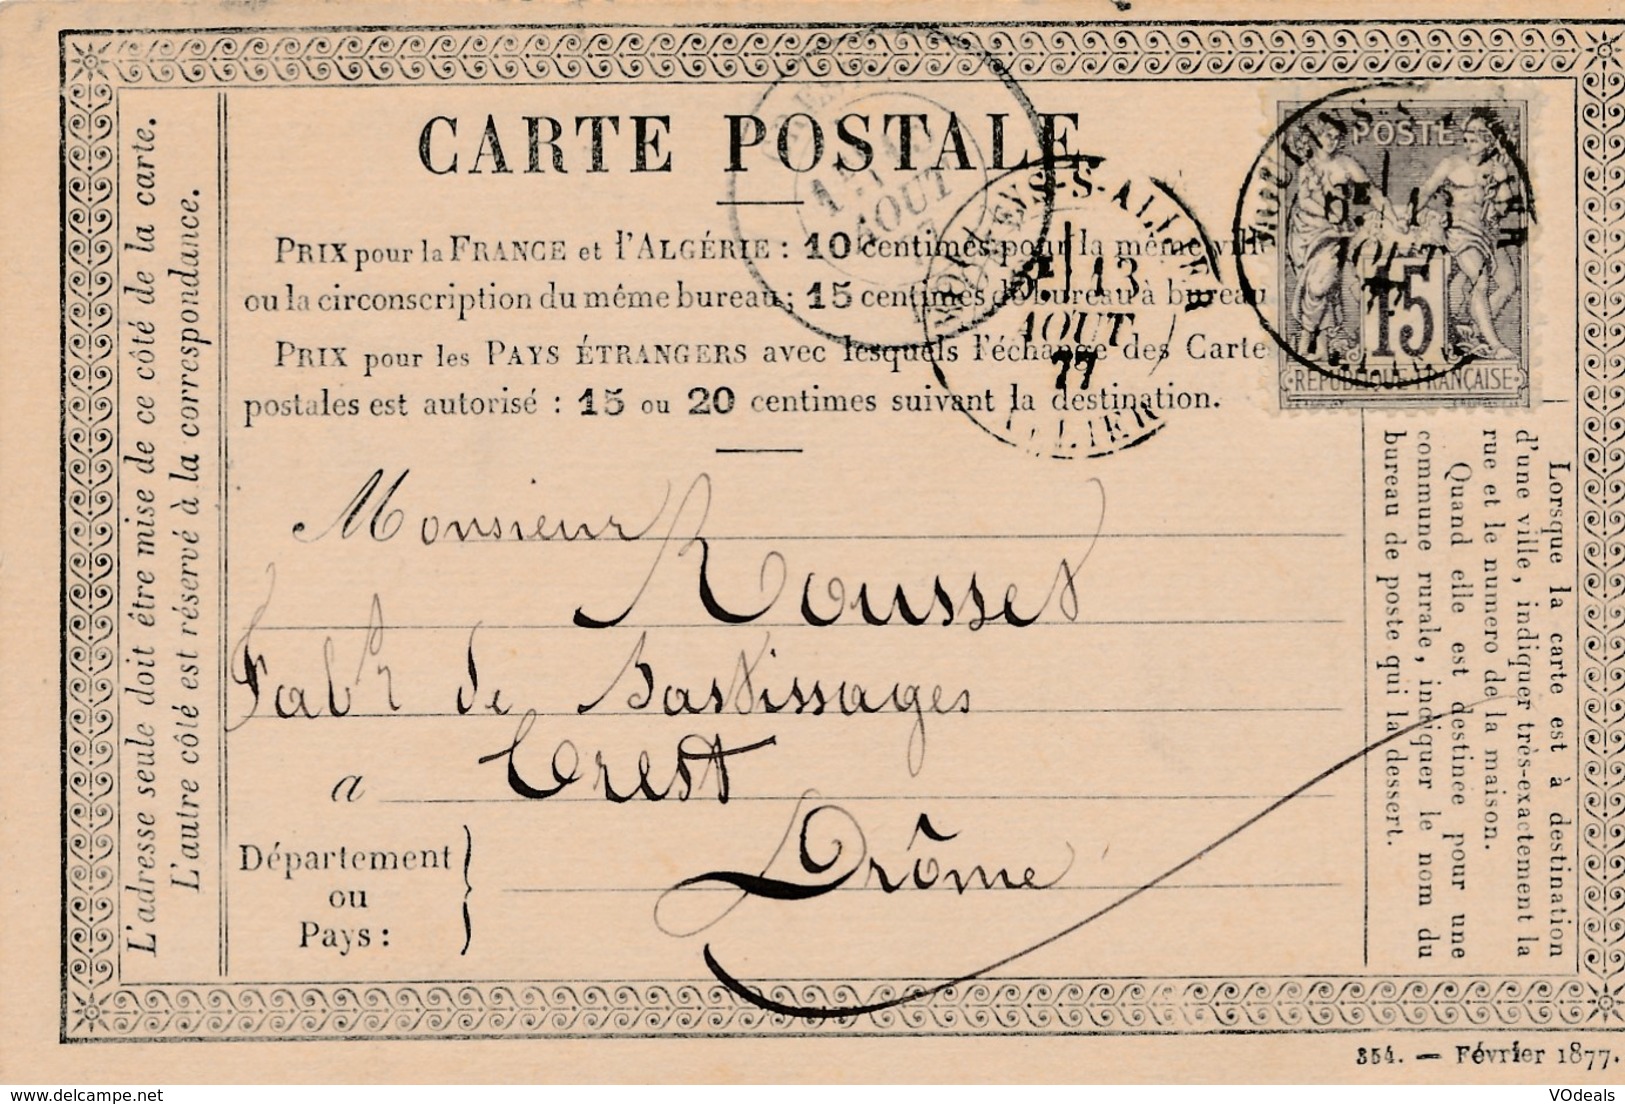 CARTE POSTALE
PRIX pour la FRANCE et l'ALGÉRIE : 10 centimes pour la même ville
ou la circonscription du même bureau ; 15 centimes de bureau à bureau
PRIX pour les PAYS ÉTRANGERS avec lesquels l'échange des Cartes
postales est autorisé : 15 ou 20 centimes suivant la destination.
MOULINS-S-ALLIER
13
AOUT
77
ALLIER
AOUT
POSTE
MOULINS-S-ALLIER
13
AOUT
77
15
RÉPUBLIQUE FRANÇAISE
L'adresse seule doit être mise de ce côté de la carte.
L'autre côté est réservé à la correspondance.
Monsieur Rousset
Fabr de Bastissages
a Crest
Département
ou
Pays :
Drôme
Lorsque la carte est à destination
d'une ville, indiquer très-exactement la
rue et le numéro de la maison.
Quand elle est destinée pour une
commune rurale, indiquer le nom du
bureau de poste qui la dessert.
354. — Février 1877.
www.delcampe.net
VOdeals